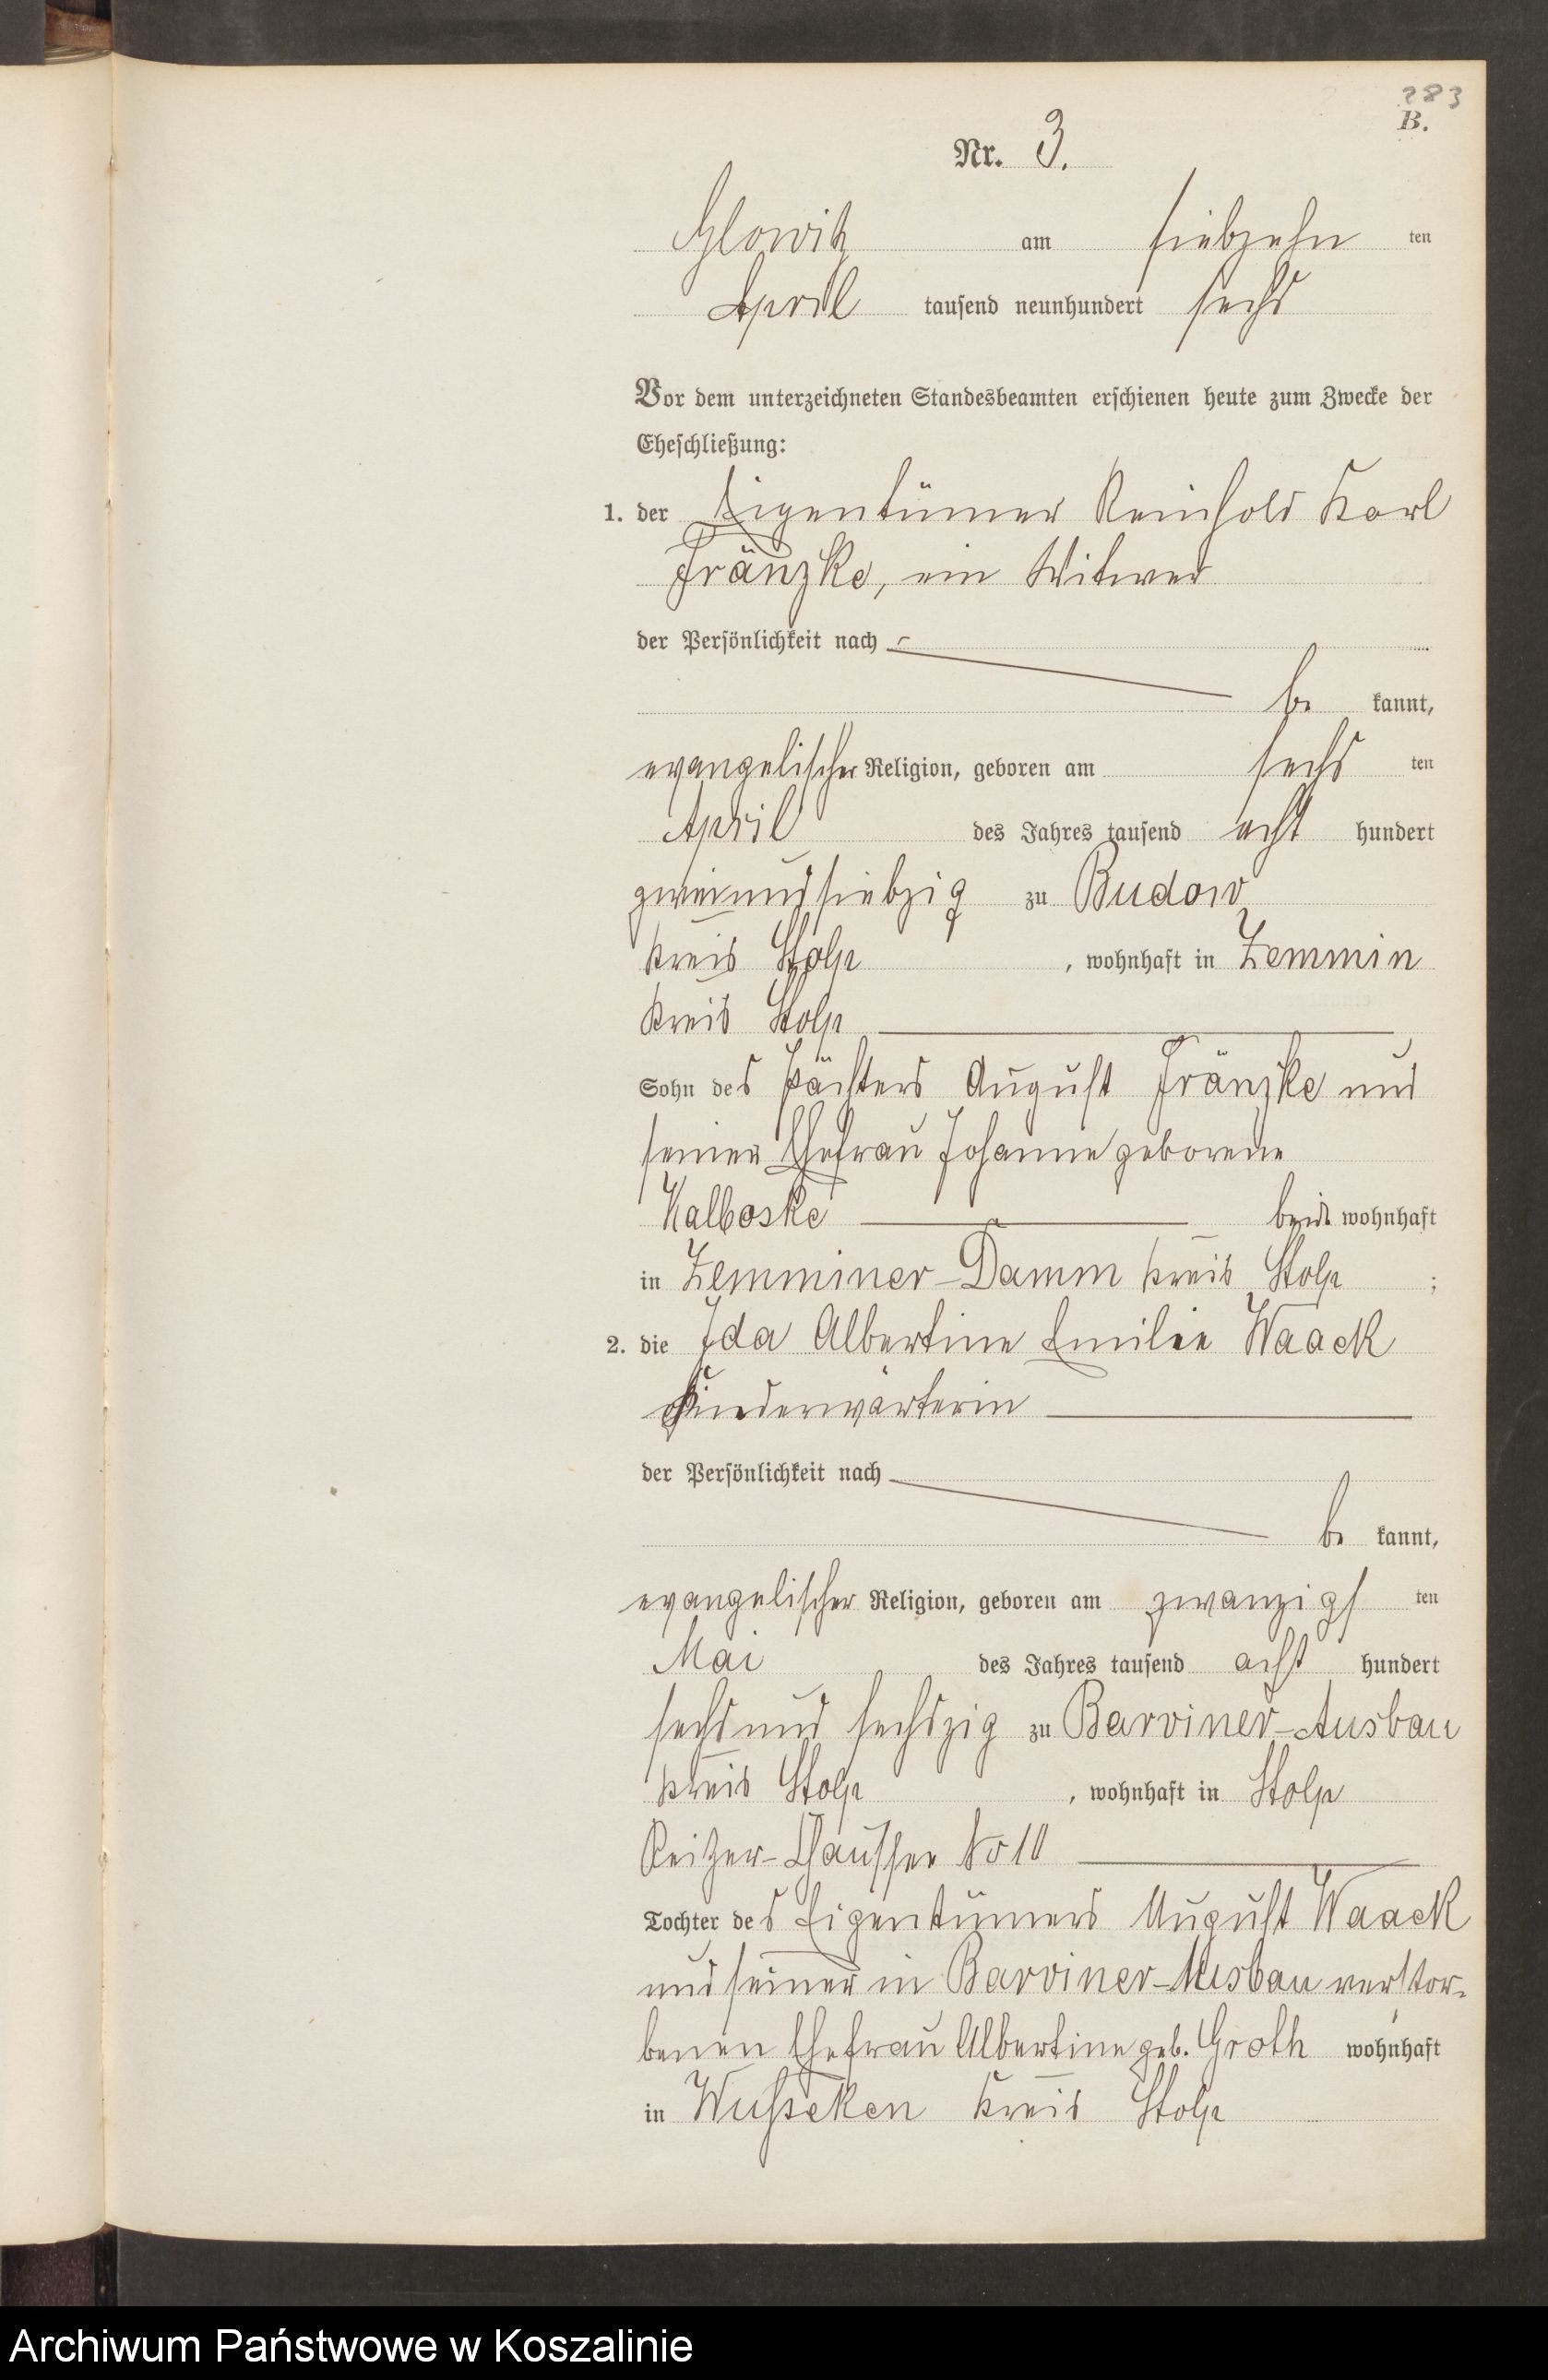 283
B.
Nr. 3.
Glowitz am siebzehn ten
April tausend neunhundert sechs
Vor dem unterzeichneten Standesbeamten erschienen heute zum Zwecke der
Eheschließung:
1. der Eigentümer Reinhold Karl
Fränzke, ein Witwer
der Persönlichkeit nach
be kannt,
evangelischer Religion, geboren am sechs ten
April des Jahres tausend acht hundert
zweiundsiebzig zu Budow
Kreis Stolp, wohnhaft in Zemmin
Kreis Stolp
Sohn des Pächters August Fränzke und
seiner Ehefrau Johanne geborene
Kalboske beide wohnhaft
in Zemminer-Damm Kreis Stolp ;
2. die Ida Albertine Emilie Waack
Kinderwärterin
der Persönlichkeit nach
be kannt,
evangelischer Religion, geboren am zwanzigs ten
Mai des Jahres tausend acht hundert
sechsund sechszig zu Barviner-Ausbau
Kreis Stolp, wohnhaft in Stolp
Reitzer-Chaussee No 10
Tochter des Eigentümers August Waack
und seiner in Barviner-Ausbau verstor-
benen Ehefrau Albertine geb. Groth wohnhaft
in Wußeken Kreis Stolp
Archiwum Państwowe w Koszalinie